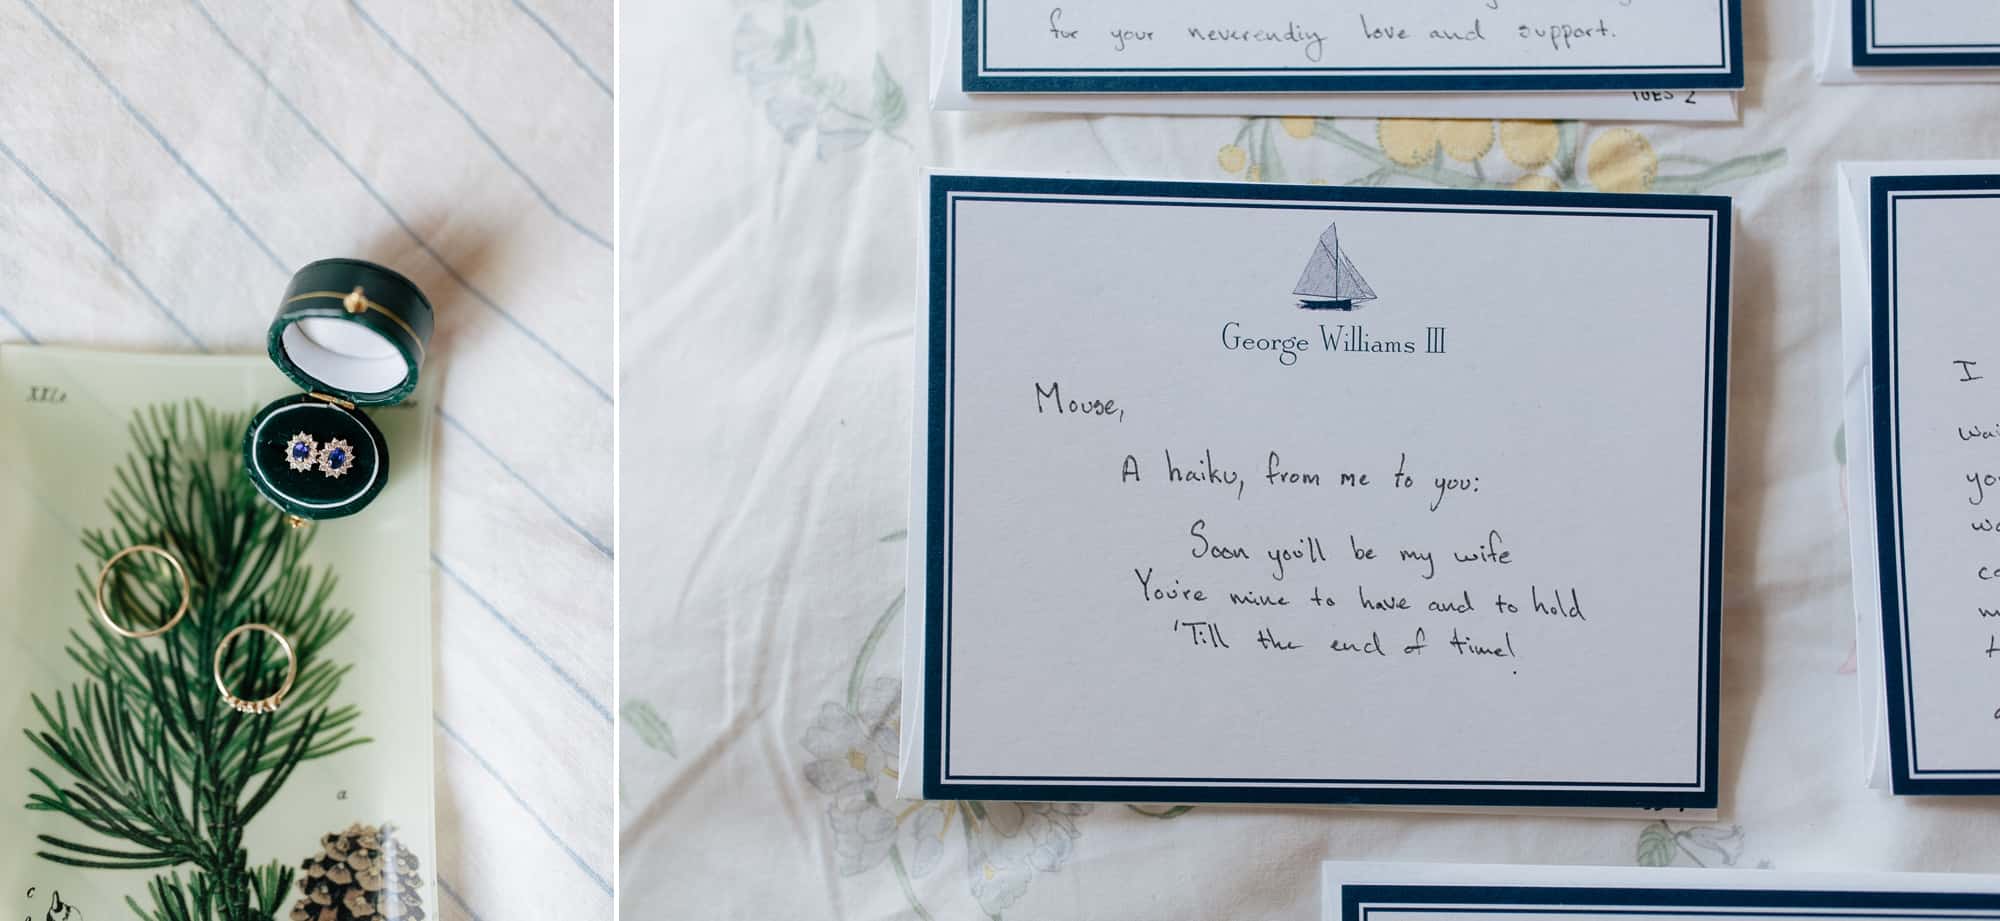 for your neverending love and support.
TUES 2
George Williams III
Mouse,
A haiku, from me to you:
Soon you'll be my wife
You're mine to have and to hold
'Till the end of time!
I
a
c